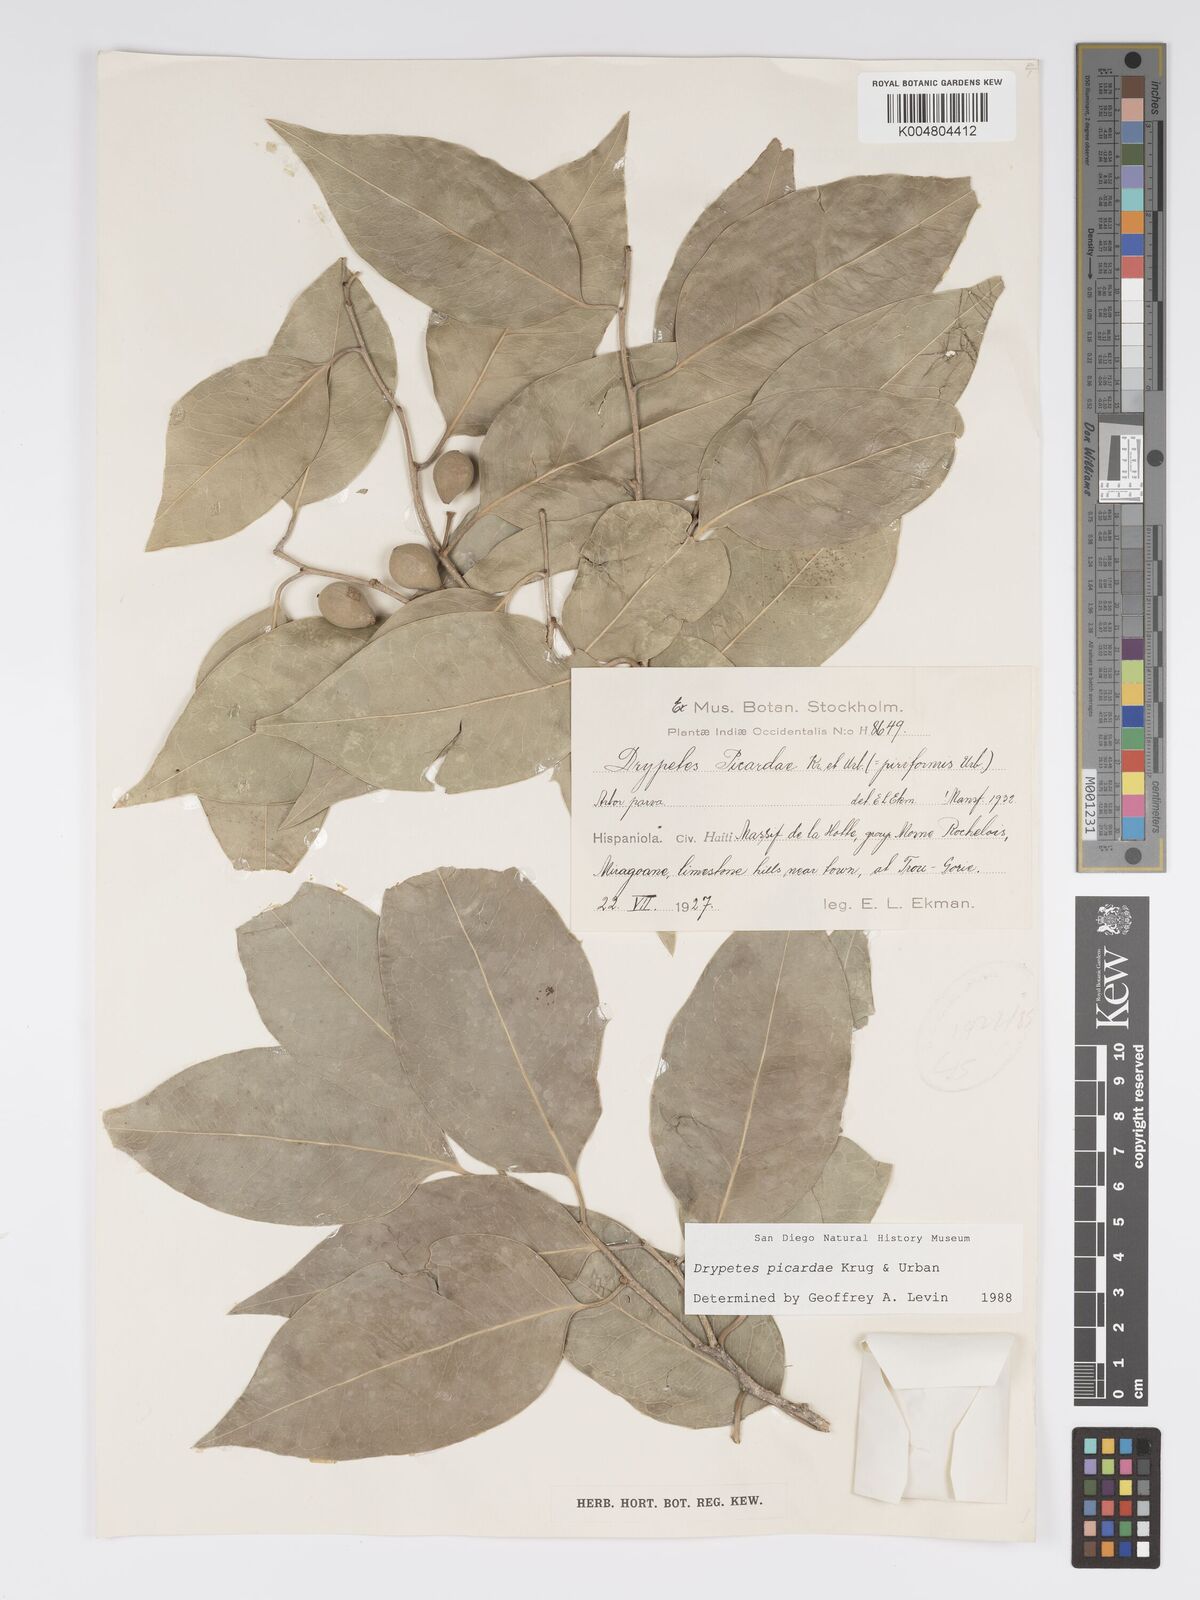 ROYAL BOTANIC GARDENS KEW
K004804412
Ex Mus. Botan. Stockholm.
Plantæ Indiæ Occidentalis N:o H 8649.
Drypetes Picardae Kr. et Urb. (= piriformis Urb.)
Arbor parva. det. E. L. Ekm. Mansf. 1932
Hispaniola. Civ. Haiti Massif de la Hotte, group Morne Rochelois,
Miragoane, limestone hills near town, at Trou-
22. VII. 1927. leg. E. L. Ekman.
San Diego Natural History Museum
Drypetes picardae Krug & Urban
Determined by Geoffrey A. Levin 1988
HERB. HORT. BOT. REG. KEW.
inches
Density
Don Williams
M001231
Royal Botanic Gardens
Kew
copyright reserved
0 1 2 3 4 5 6 7 8 9 10
cm